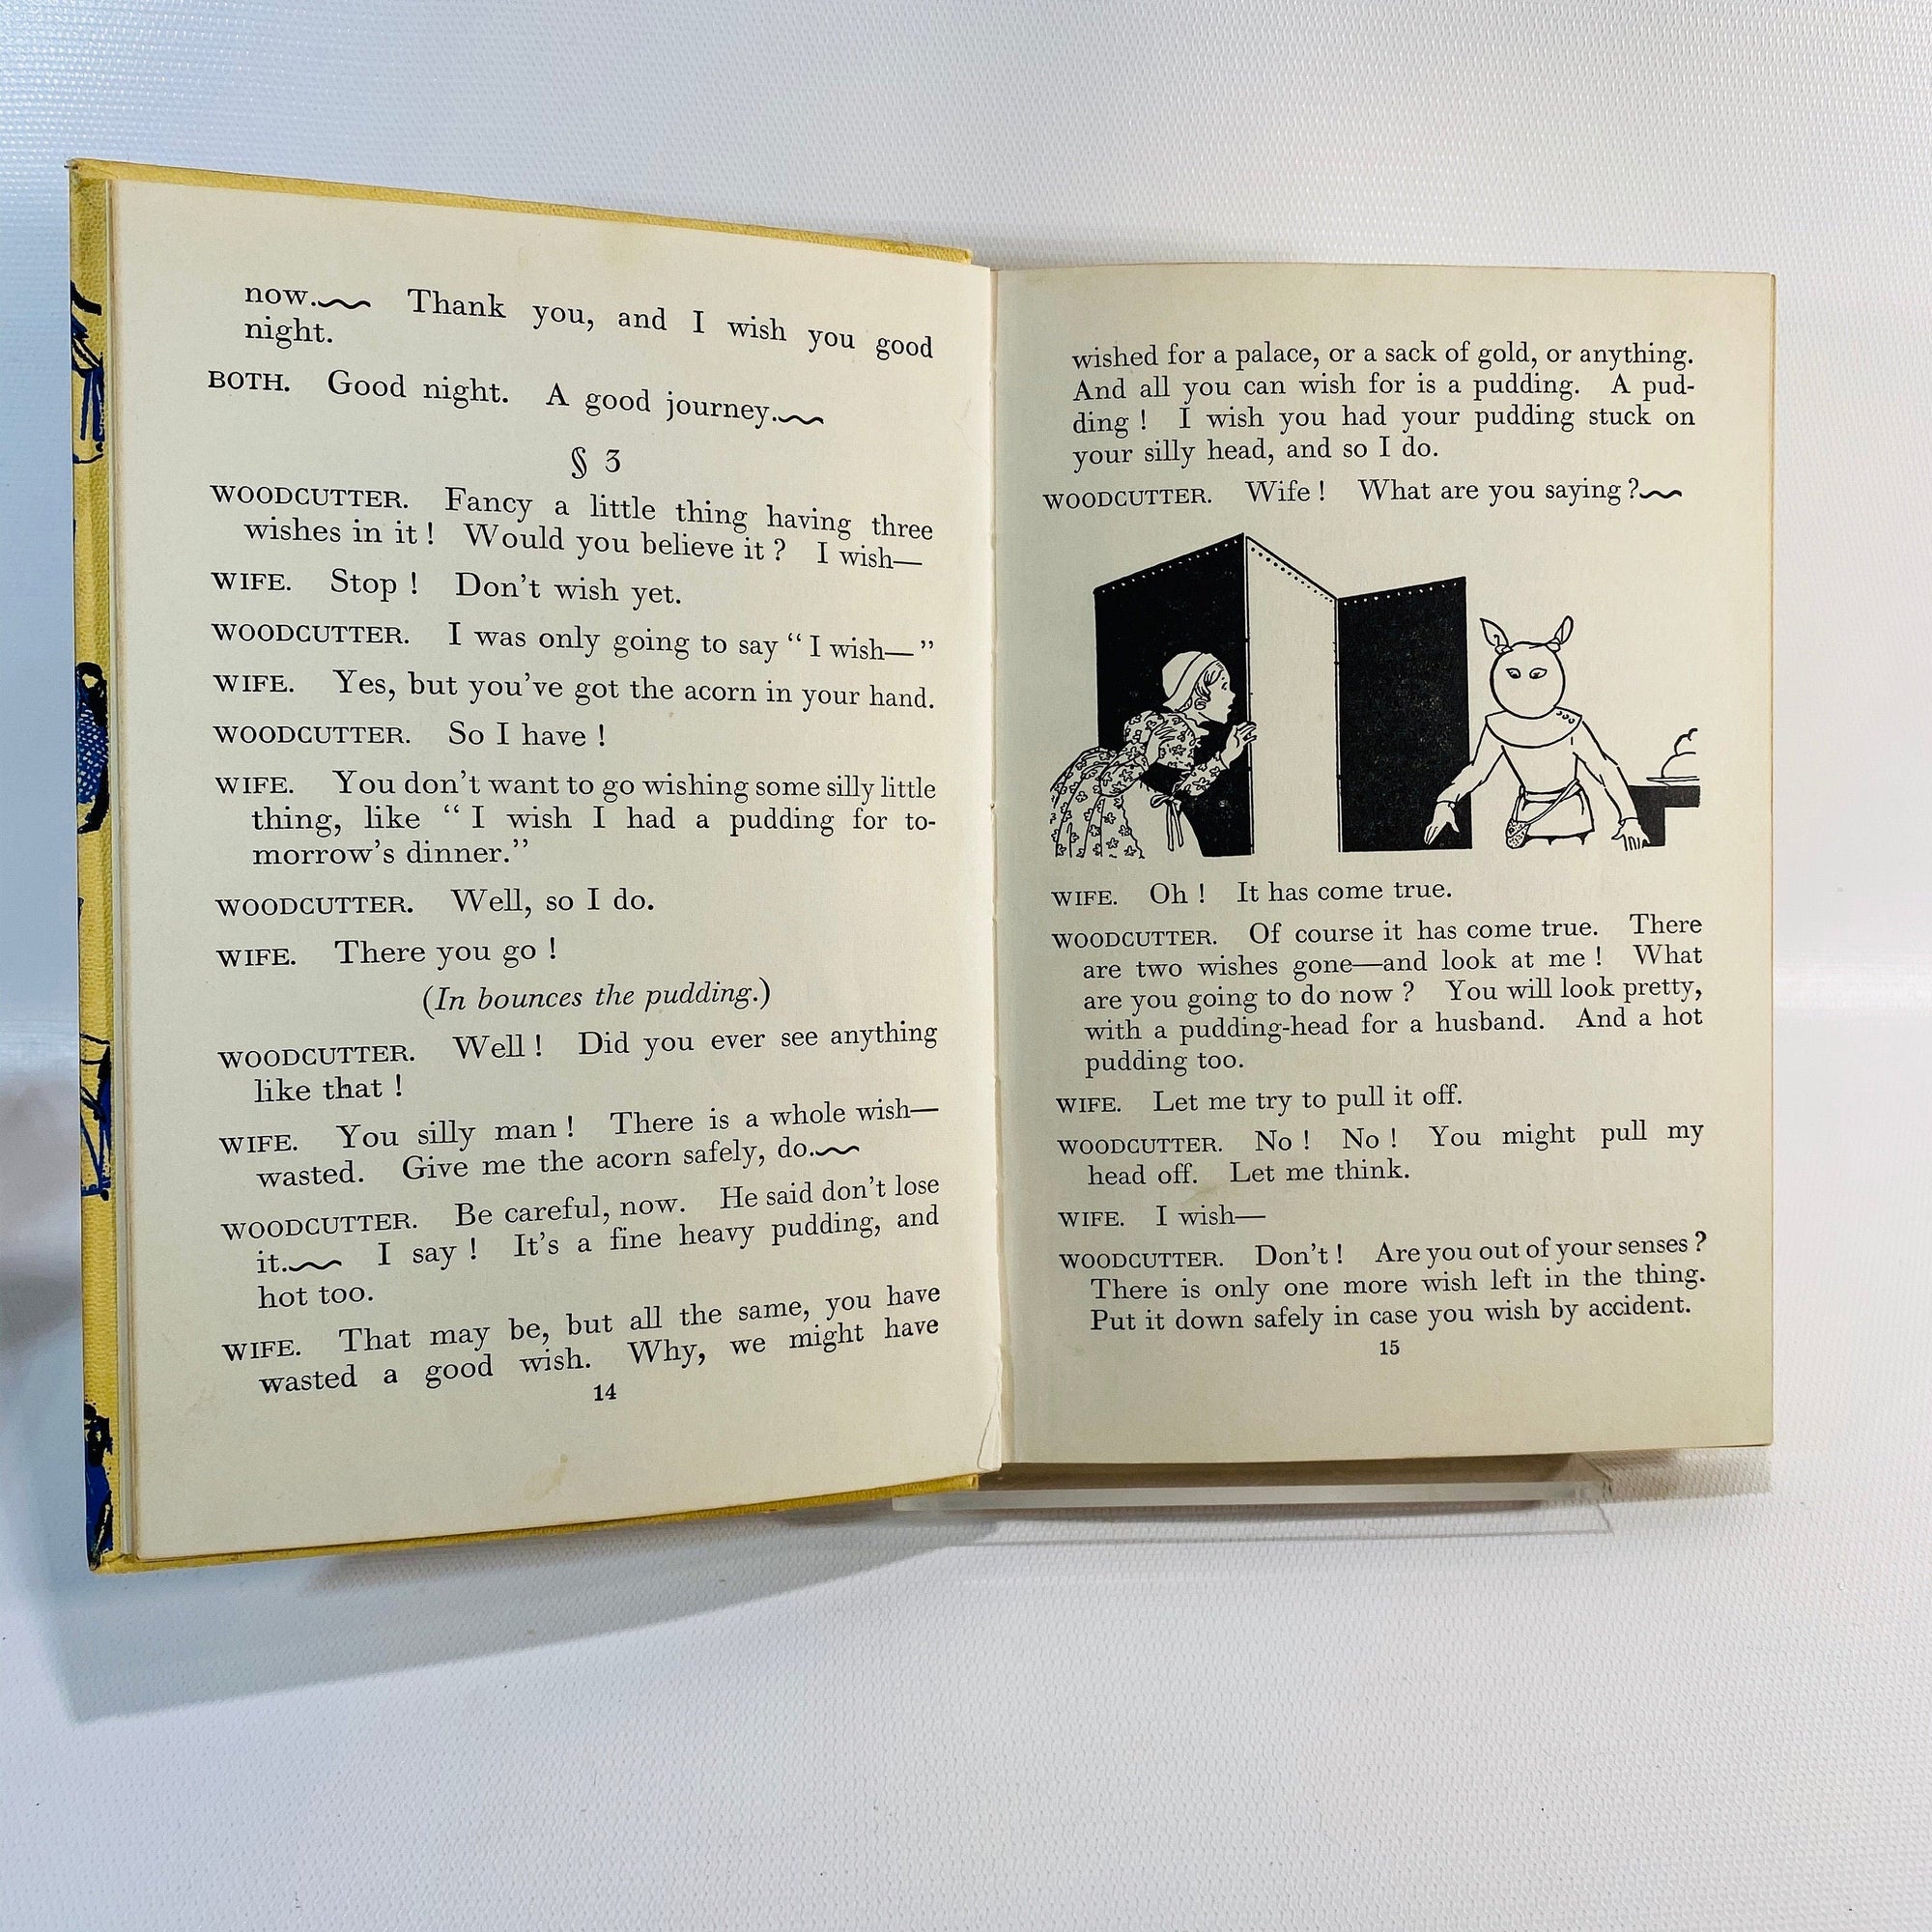 now.~~ Thank you, and I wish you good
night.
BOTH. Good night. A good journey.~~
§ 3
WOODCUTTER. Fancy a little thing having three
wishes in it ! Would you believe it ? I wish—
WIFE. Stop ! Don't wish yet.
WOODCUTTER. I was only going to say “ I wish— ”
WIFE. Yes, but you've got the acorn in your hand.
WOODCUTTER. So I have !
WIFE. You don't want to go wishing some silly little
thing, like “ I wish I had a pudding for to-
morrow's dinner.”
WOODCUTTER. Well, so I do.
WIFE. There you go !
(In bounces the pudding.)
WOODCUTTER. Well ! Did you ever see anything
like that !
WIFE. You silly man ! There is a whole wish—
wasted. Give me the acorn safely, do.~~
WOODCUTTER. Be careful, now. He said don't lose
it.~~ I say ! It's a fine heavy pudding, and
hot too.
WIFE. That may be, but all the same, you have
wasted a good wish. Why, we might have
14
wished for a palace, or a sack of gold, or anything.
And all you can wish for is a pudding. A pud-
ding ! I wish you had your pudding stuck on
your silly head, and so I do.
WOODCUTTER. Wife ! What are you saying ?~~
WIFE. Oh ! It has come true.
WOODCUTTER. Of course it has come true. There
are two wishes gone—and look at me ! What
are you going to do now ? You will look pretty,
with a pudding-head for a husband. And a hot
pudding too.
WIFE. Let me try to pull it off.
WOODCUTTER. No ! No ! You might pull my
head off. Let me think.
WIFE. I wish—
WOODCUTTER. Don't ! Are you out of your senses ?
There is only one more wish left in the thing.
Put it down safely in case you wish by accident.
15